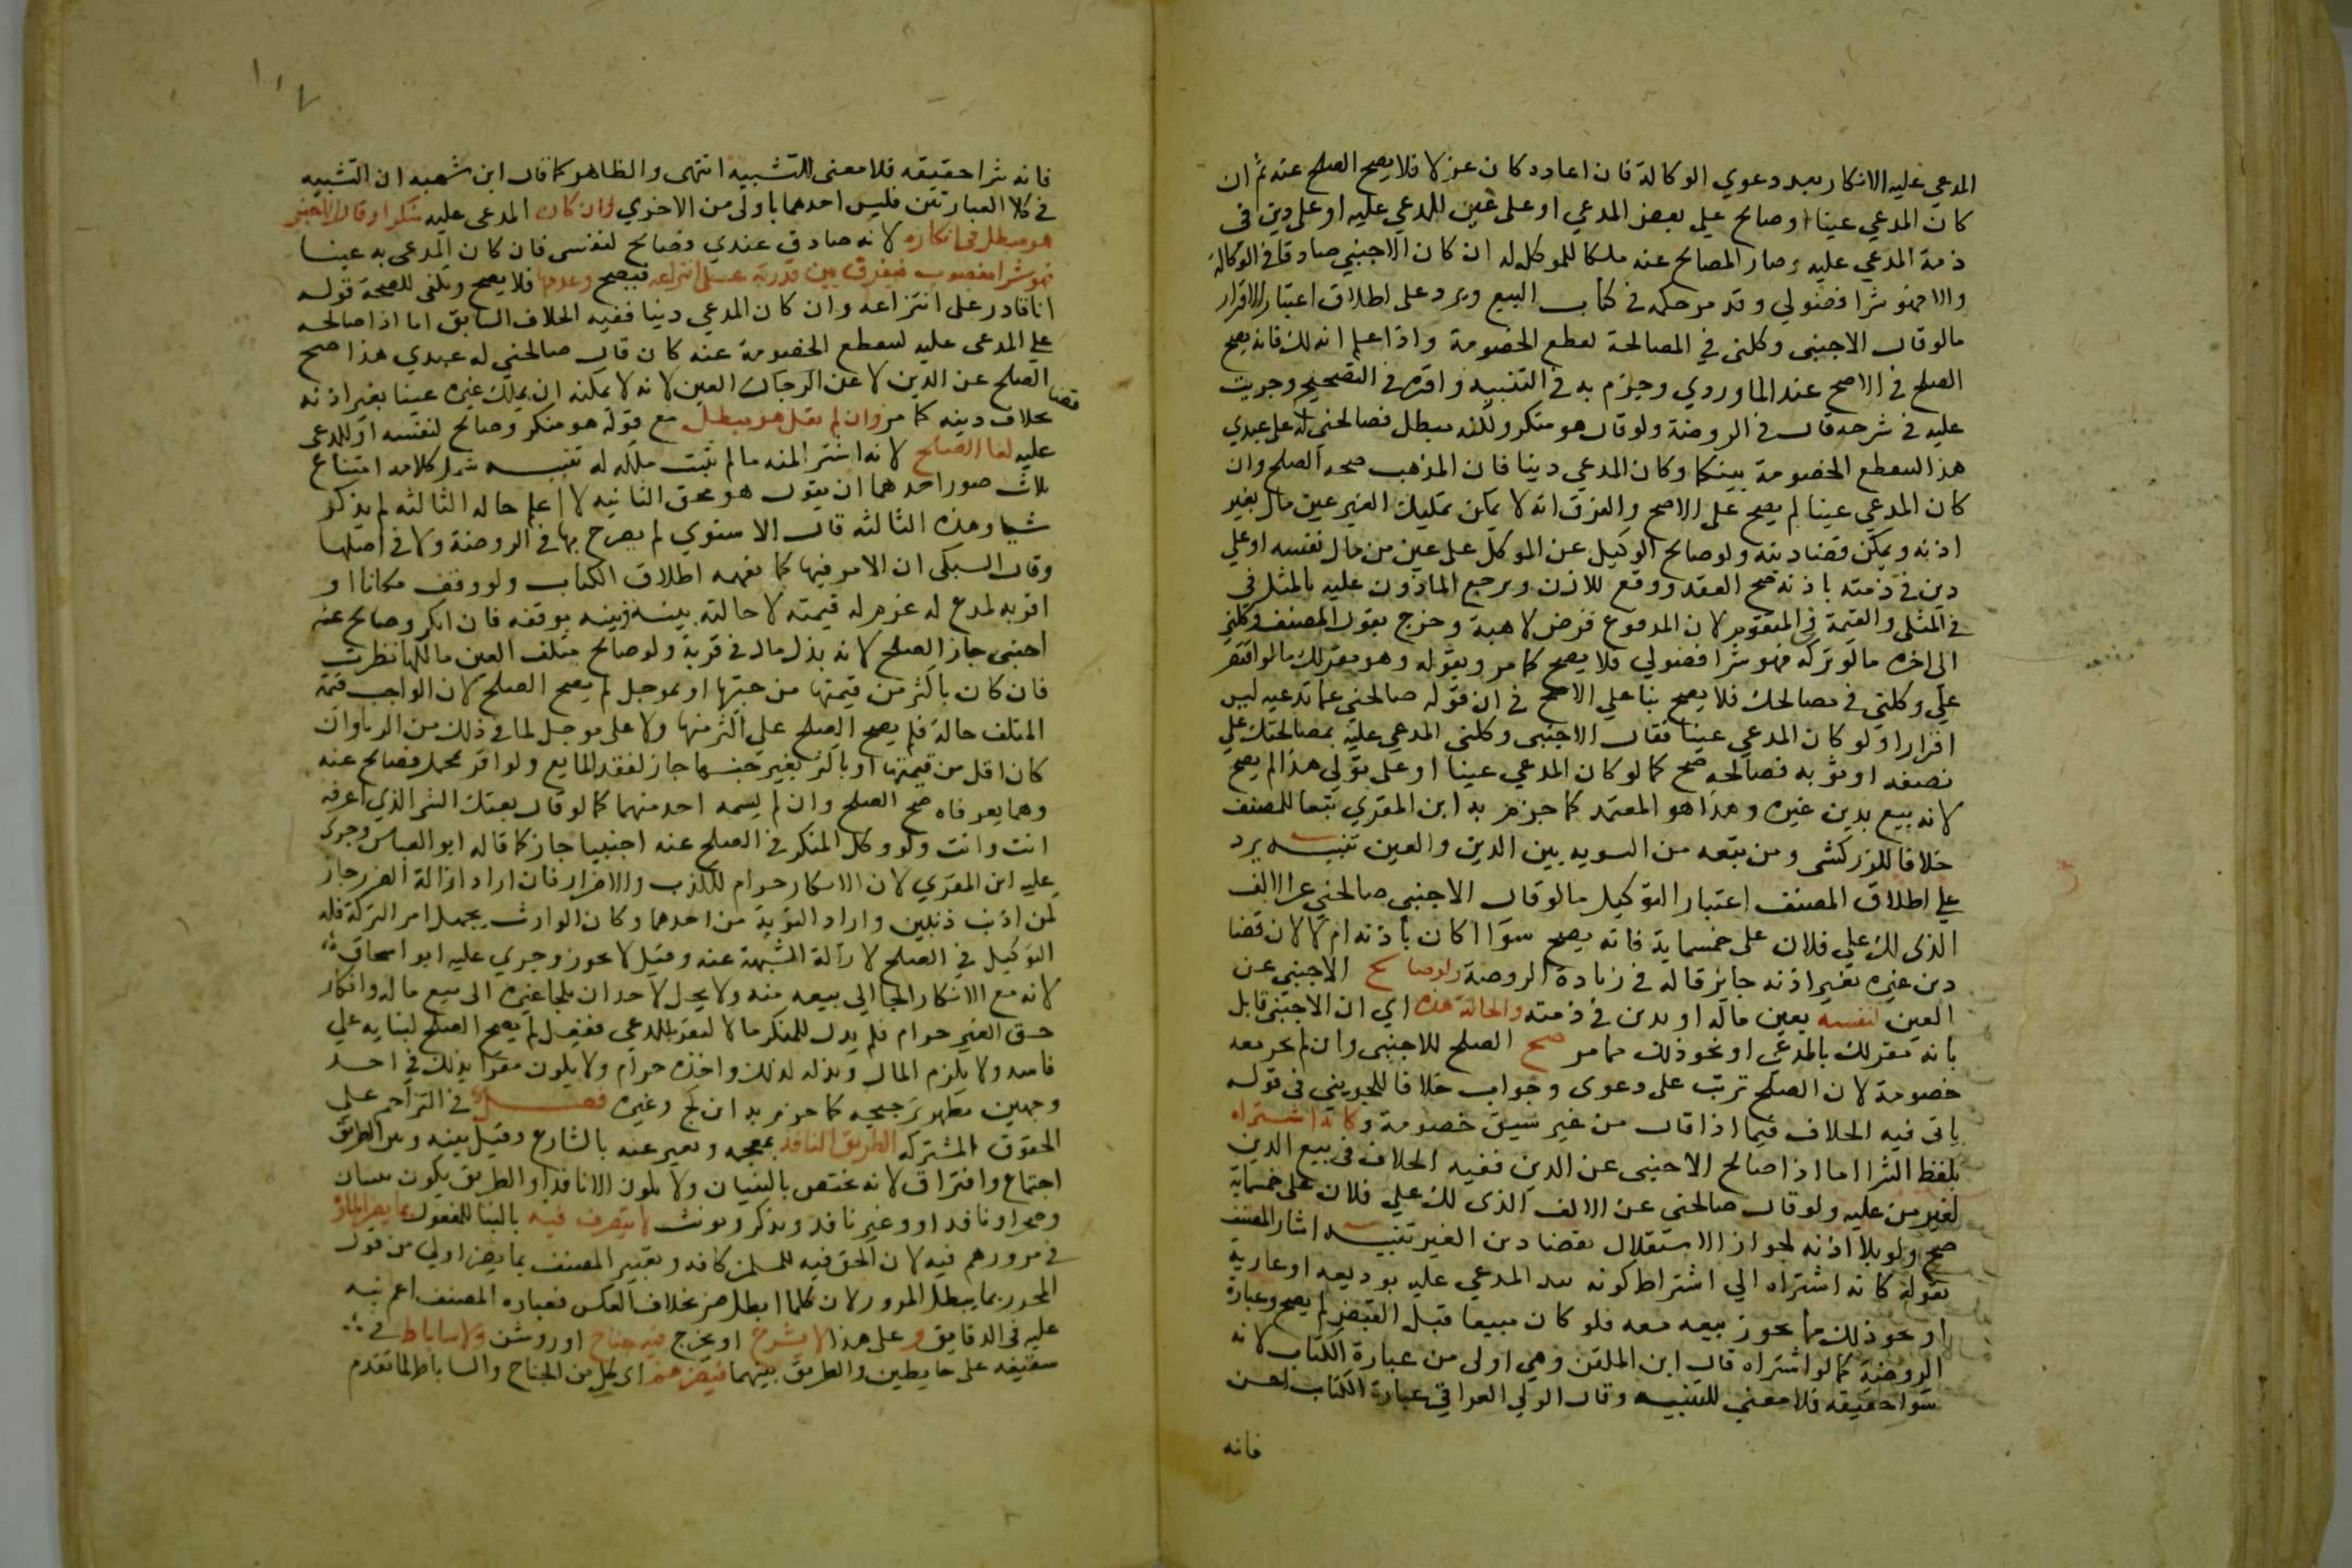 المدعي عليه الانكار بعد دعوي الوكالة فان اعاده كان عزلا فلا يصح الصلح عنه ثم ان
كان المدعي عينا وصالح علي بعض المدعي او على عين للمدعي عليه او على دين في
ذمة المدعي عليه وصار المصالح عنه ملكا للموكل له ان كان الاجنبي صادقا في الوكالة
والا فهو شرا فضولي وقد مر حكمه في كتاب البيع ويرد على اطلاق اعتبار الاقرار
مالو قال الاجنبى وكلنى في المصالحة لقطع الخصومة وانا اعلم انه لك فانه يصح
الصلح في الاصح عند الماوردي وجزم به في التنبيه واقره في التصحيح وجريت
عليه في شرحه قال في الروضة ولو قال هو منكر ولكنه مبطل فصالحني له على عبدي
هذا لتنقطع الخصومة بينكما وكان المدعي دينا فان المذهب صحة الصلح وان
كان المدعي عينا لم يصح على الاصح والفرق انه لا يمكن تمليك الغير عين مال بغير
اذنه ويمكن قضا دينه ولو صالح الوكيل عن الموكل على عين من مال نفسه او علي
دين في ذمته باذنه صح العقد ووقع للاذن ويرجع الماذون عليه بالمثل في
في المثلي والقيمة في المتقوم لان المدفوع قرض لا هبة وخرج بقول المصنف وكلني
الى اخره مالو تركه فهو شرا فضولي فلا يصح كما مر وبقوله وهو مقر لك مالو اقتصر
علي وكلني في مصالحك فلا يصح بنا علي الاصح في ان قوله صالحني عما تدعيه ليس
اقرارا ولو كان المدعي عينا فقال الاجنبى وكلني المدعي عليه بمصالحتك علي
نصفه او ثوبه فصالحه صح كما لو كان المدعي عينا او على ثوبي هذا لم يصح
لانه بيع بدين غيره وهذا هو المعتمد كما جزم به ابن المقري تبعا للمصنف
خلافا للزركشى ومن تبعه من التسويه بين الدين والعين تنبيه يرد
علي اطلاق المصنف اعتبار التوكيل مالو قال الاجنبي صالحني عن الالف
الذى لك علي فلان على خمسماية فانه يصح سوا اكان باذنه ام لا لان قضا
دين غيره بغير اذنه جايز قاله في زيادة الروضة ولو صالح الاجنبى عن
العين لنفسه بعين ماله او بدين في ذمته والحالة هذه اي ان الاجنبى قايل
بانه مقر لك بالمدعي او نحو ذلك مما مر صح الصلح للاجنبى وان لم تجر معه
خصومة لان الصلح ترتب على دعوى وجواب خلافا للجويني في قوله
ياتى فيه الخلاف فيما اذا قال من غير سبق خصومة وكانه اشتراه
بلفظ الشرا اما اذا صالح الاجنبى عن الدين ففيه الخلاف في بيع الدين
لغير من عليه ولو قال صالحني عن الالف الذى لك علي فلان على خمسماية
صح ولو بلا اذنه لجواز الاستقلال بقضا دين الغير تنبيه اشار المصنف
بقوله كانه اشتراه الي اشتراط كونه بيد المدعي عليه بوديعه او عارية
او نحو ذلك مما يجوز بيعه معه فلو كان مبيعا قبل القبض لم يصح وعبارة
الروضة كما لو اشتراه قال ابن الملقن وهي اولى من عبارة الكتاب لانه
شرا حقيقه فلا معني للتشبيه وقال الولي العراقي عبارة الكتاب احسن
فانه
١١٧
فانه شرا حقيقه فلا معنى للتشبيه انتهى والظاهر كما قال ابن شهبه ان التشبيه
في كلا العبارتين فليس احدهما باولى من الاخري وان كان المدعى عليه منكرا وقال الاجنبي
هو مبطل في انكاره لانه صادق عندي فصالح لنفسي فان كان المدعى به عينا
فهو شرا مغصوب فيفرق بين قدرته على انتزاعه فيصح وعدمها فلا يصح ويكفى للصحة قوله
انا قادر على انتزاعه وان كان المدعي دينا ففيه الخلاف السابق اما اذا صالحه
علي المدعى عليه لتنقطع الخصومة عنه كان قال صالحني له عبدي هذا صح
الصلح عن الدين لا عن العين لانه لا يمكنه ان يملك غيره عينا بغير اذنه
قضا
بخلاف دينه كما مر وان لم يقل هو مبطل مع قوله هو منكر وصالح لنفسه او للمدعى
عليه لغا الصلح لانه اشترا منه مالم يثبت ملكه له تنبيه شمل كلامه امتناع
ثلاث صور احدهما ان يقول هو محق الثانيه لا اعلم حاله الثالثه لم يذكر
شيا وهذه الثالثه قال الاسنوي لم يصرح بها في الروضة ولا في اصلها
وقال السبكى ان الامر فيها كما يفهمه اطلاق الكتاب ولو وقف مكانا او
اقر به لمدع له غرم له قيمته لاحالته بينه وبينه بوقفه فان انكر وصالح عنه
اجنبى جاز الصلح لانه بذل مال في قربة ولو صالح متلف العين مالكها نظرت
فان كان باكثر من قيمتها من جنسها او بموجل لم يصح الصلح لان الواجب قيمة
المتلف حالة فلم يصح الصلح علي اكثر منها ولا على موجل لما في ذلك من الربا وان
كان اقل من قيمتها او باكثر بغير جنسها جاز لفقد المانع ولو اقر بمجمل فصالح عنه
وهما يعرفاه صح الصلح وان لم يسمه احد منهما كما لو قال بعتك الشى الذي اعرفه
انت وانت ولو وكل المنكر في الصلح عنه اجنبيا جاز كما قاله ابو العباس وجرى
عليه ابن المقري لان الانكار حرام للكذب والاضرار فان اراد ازالة الضرر جاز
لمن اذنب ذنبين واراد التوبة من احدهما وكان الوارث يجهل امر التركة فله
التوكيل في الصلح لازالة الشبهة عنه وقيل لا يجوز وجري عليه ابو اسحاق
لانه مع الانكار الجا الي بيعه منه ولا يحل لاحد ان يلجا غيره الى بيع ماله وانكار
حق الغير حرام فلو بذل للمنكر مالا ليقر للمدعي ففعل لم يصح الصلح لبنايه علي
فاسد ولا يلزم المال وبذله لذلك واخذه حرام ولا يكون مقرا بذلك في احد
وجهين يظهر ترجيحه كما جزم به ابن كج وغيره فصل في التزاحم علي
الحقوق المشتركه الطريق النافذ بمعجمه ويعبر عنه بالشارع وقيل بينه وبين الطريق
اجتماع وافتراق لانه يختص بالبنيان ولا يكون الا نافذا والطريق يكون ببنيان
وصحرا ونافذ او وغير نافذ ويذكر ويونث لا يتصرف فيه بالبنا للمفعول بما يضر المارة
في مرورهم فيه لان الحق فيه للمسلمين كافه وتعبير المصنف بما يضر اولي من قول
المحرر بما يبطل المرور لان كلما ابطل ضر بخلاف العكس فعباره المصنف اعم نبه
عليه في الدقايق و على هذا لا يشرع او يخرج فيه جناح او روشن ولا ساباط في
سقيفه على حايطين والطريق بينهما فيضرهم اى كل من الجناح والساباط لما تقدم